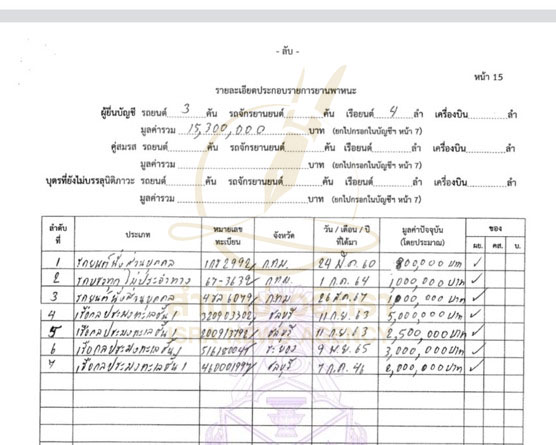 - ลับ -
หน้า 15
รายละเอียดประกอบรายการยานพาหนะ
ผู้ยื่นบัญชี รถยนต์ 3 คัน รถจักรยานยนต์ คัน เรือยนต์ 4 ลำ เครื่องบิน ลำ
มูลค่ารวม 15,300,000 บาท (ยกไปกรอกในบัญชีฯ หน้า 7)
คู่สมรส รถยนต์ คัน รถจักรยานยนต์ คัน เรือยนต์ ลำ เครื่องบิน ลำ
มูลค่ารวม บาท (ยกไปกรอกในบัญชีฯ หน้า 7)
บุตรที่ยังไม่บรรลุนิติภาวะ รถยนต์ คัน รถจักรยานยนต์ คัน เรือยนต์ ลำ เครื่องบิน ลำ
มูลค่ารวม บาท (ยกไปกรอกในบัญชีฯ หน้า 7)
ลำดับที่ ประเภท หมายเลขทะเบียน จังหวัด วัน / เดือน / ปี ที่ได้มา มูลค่าปัจจุบัน (โดยประมาณ) ของ
ผย. คส. บ.
1 รถยนต์นั่งส่วนบุคคล 2992 กทม. 24 มี.ค. 60 800,000 บาท ✓
2 รถบรรทุก ไม่ประจำทาง 67-3639 กทม. 1 ก.ค. 64 1,000,000 บาท ✓
3 รถยนต์นั่งส่วนบุคคล กทม 26 ส.ค. 67 1,000,000 บาท ✓
4 เรือกลประมงทะเลชั้น 1 ชลบุรี 11 ก.ย. 63 5,000,000 บาท ✓
5 เรือกลประมงทะเลชั้น 1 ชลบุรี 11 ก.ย. 63 2,500,000 บาท ✓
6 เรือกลประมงทะเลชั้น 1 ระยอง 9 พ.ย. 65 3,000,000 บาท ✓
7 เรือกลประมงทะเลชั้น 1 ชลบุรี 7 ก.ค. 46 2,000,000 บาท ✓